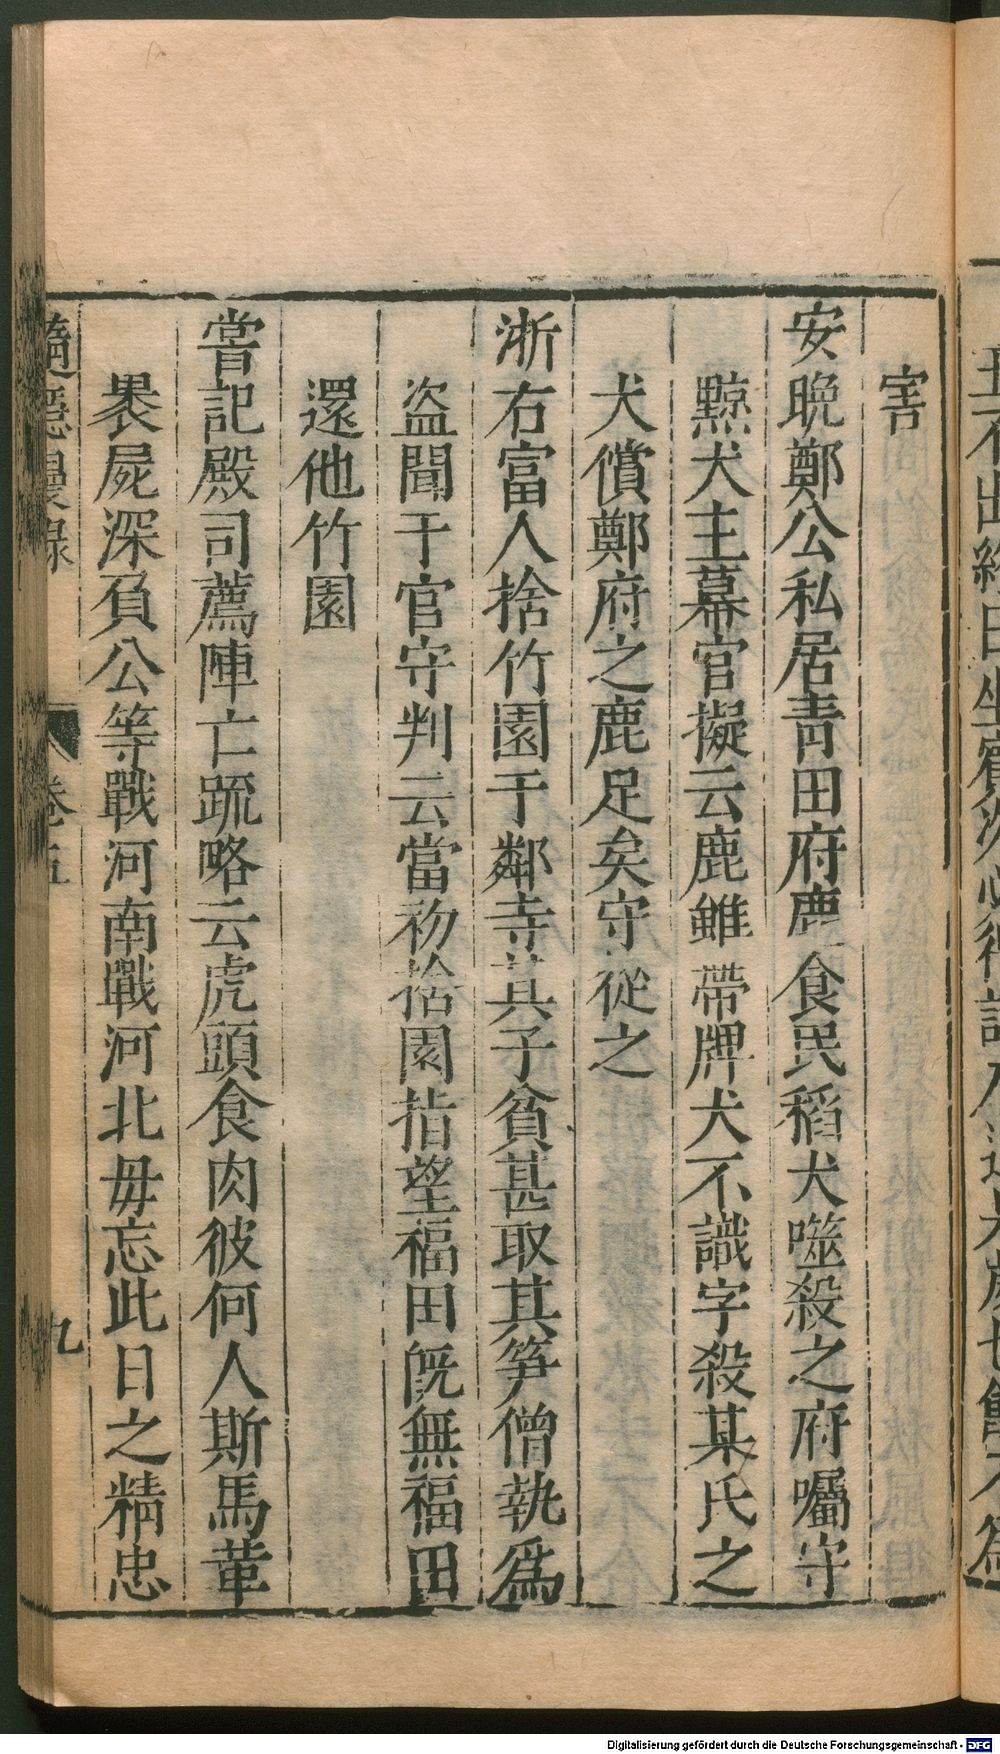 害
安晚鄭公私居青田府鹿食民稻犬噬殺之府囑守
黥犬主幕官擬云鹿雖帶牌犬不識字殺某氏之
犬償鄭府之鹿足矣守從之
浙右富人捨竹園于鄰寺其子貧甚取其筍僧執爲
盜聞于官守判云當初捨園指望福田旣無福田
還他竹園
嘗記殿司薦陣亡疏略云虎頭食肉彼何人斯馬革
裹屍深負公等戰河南戰河北毋忘此日之精忠
隨隱漫錄 卷五 九
Digitalisierung gefördert durch die Deutsche Forschungsgemeinschaft - DFG